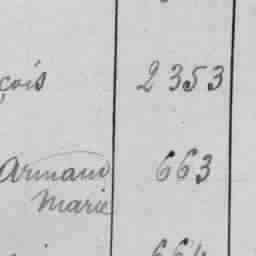 çois 2353
Armand 663
Marie
664